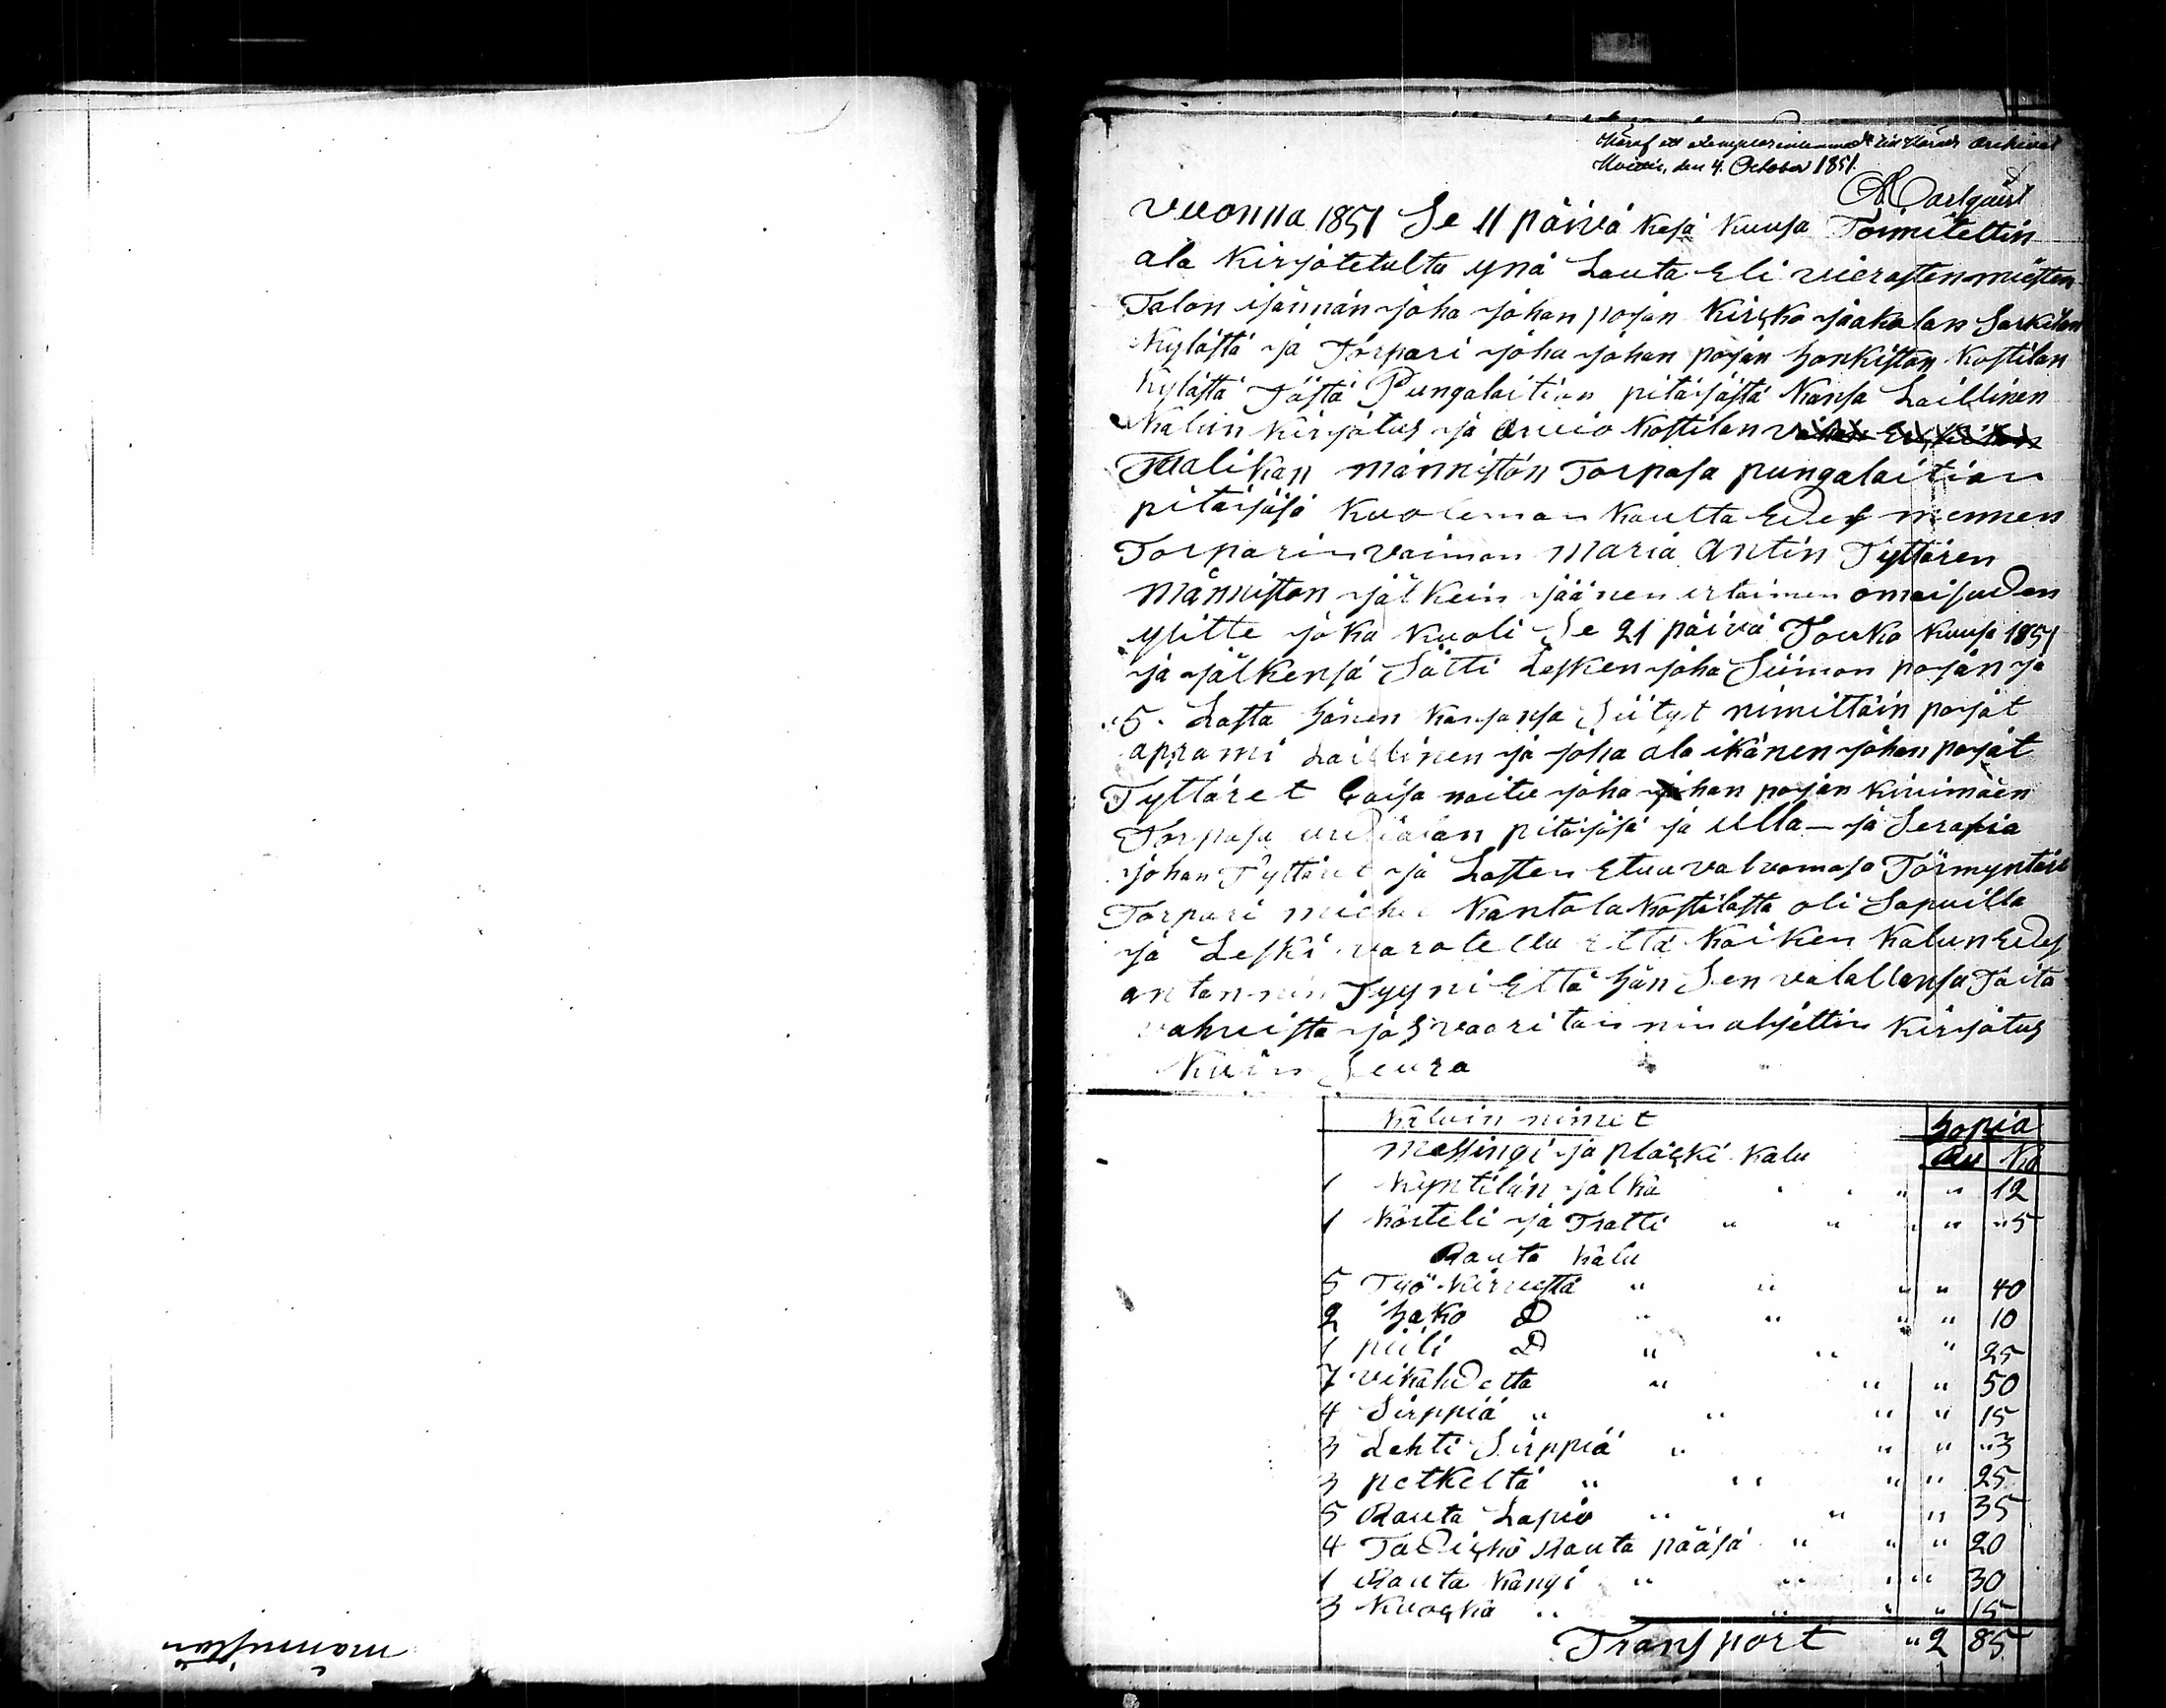 männistön
den 4. October 1851.
vuonna 1851 Se 11 päivä kesä kuusa Toimitettin
ala kirjotetulta ynä Lauta Eli vierasten miesten
Talon isännän joha johan pojan kirkko jaakolan Sarkilan
kylästä ja Torpari joha johan pojan honkiston kostilan
kylästä Tästä Pungalaitian pitäjästä kansa Laillinen
kalun kirjotus ja arvio kostilan
Talikan männistön Torpasa pungalaitian
pitäjäsä kuoleman kautta Edes mennen
Torparin vaimon Maria Antin Tyttären
Männistön jälkein jäänen irtaimen omaisuden
ylitte joka kuoli Se 21 päivä Touko kuusa 1851
ja jälkensä Jätti Lesken joha Siimon pojan ja
5. Lasta hänen kansansa Siityt nimittäin pojat
aprami Laillinen ja joha ala ikänen johan pojat
Tyttäret Caisa naitu joha johan pojan kivimäen
Torpasa urdialan pitäjäsä ja Ulla – ja Serafia
johan Tyttäret ja Lasten Etuu valvomasa Törmyntäri
Torpari michel kantola kostilasta oli Sapuilla
ja Leski varotettu että kaiken kalun Edes
antannin Tyyni Että hän Sen valallansa Taita
vahvista ja nin aljettin kirjotus
kuin Seura
kaluin nimet hopia
Messingi ja pläcki kalu Ru Ko
1 kyntilän jalka " " 12
1 körteli ja Tratti " " " " " 5
Rauta kalu
5 Työ kirvestä " " " " 40
2 hako D " " " " 10
1 piili D " " " 25
7 vikahdetta " " " 50
4 Sirppiä " " " " 15
3 Lehti Sirppiä " " " " 3
3 petkeltä " " " " 25
5 Rauta Lapio " " " 35
4 Tadicko Rauta pääsä " " " 20
1 Rauta kangi " " " " 30
3 kuocka " " " " 15
Transport " 2 85